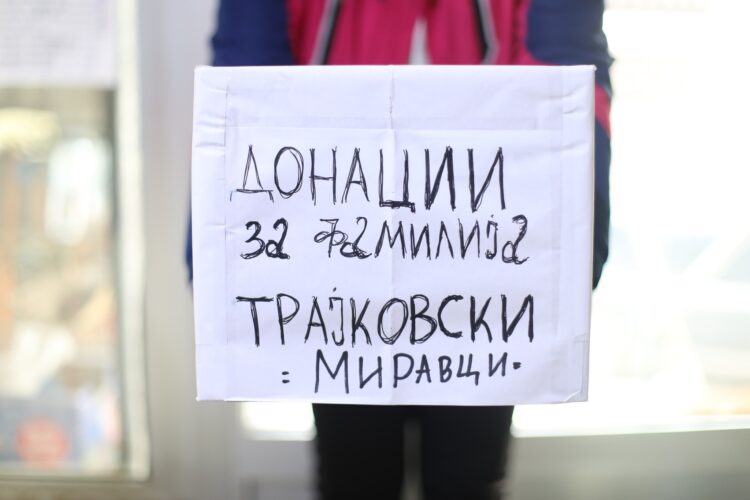 ДОНАЦИИ
За Фамилија
ТРАЈКОВСКИ
: МИРАВЦИ.